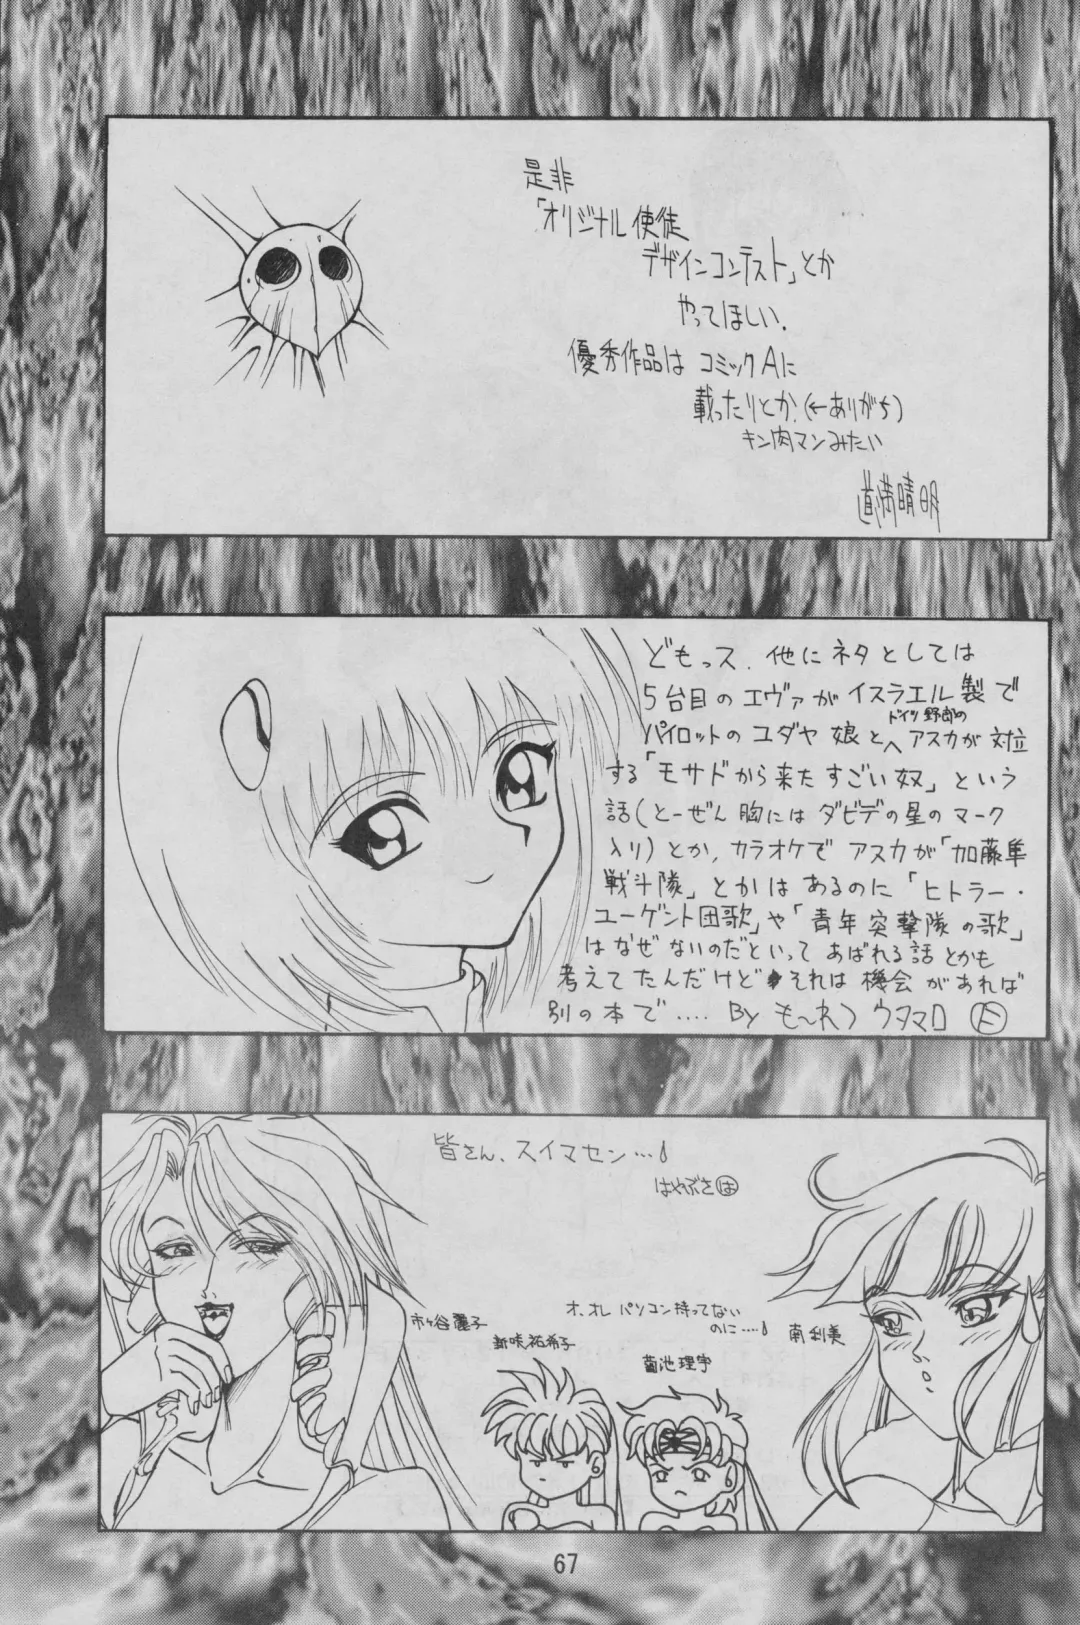 是非
「オリジナル使徒
デザインコンテスト」とか
やってほしい.
優秀作品は コミックAに
載ったりとか.(←ありがち)
キン肉マンみたい
道満晴明
どもっス. 他にネタとしては
5台目のエヴァがイスラエル製で
パイロットのユダヤ娘とドイツ野郎のアスカが対立
する「モサドから来たすごい奴」という
話(とーぜん胸にはダビデの星のマーク
入り)とか, カラオケでアスカが「加藤隼
戦斗隊」とかはあるのに「ヒトラー・
ユーゲント団歌」や「青年突撃隊の歌」
はなぜないのだといってあばれる話とかも
考えてたんだけど それは機会があれば
別の本で.... By も〜れつウタマロ
皆さん、スイマセン…
はやぶさ は
市ヶ谷麗子
新咲祐希子
オ、オレ パソコン持ってない
のに….
菊池理宇
南利美
67